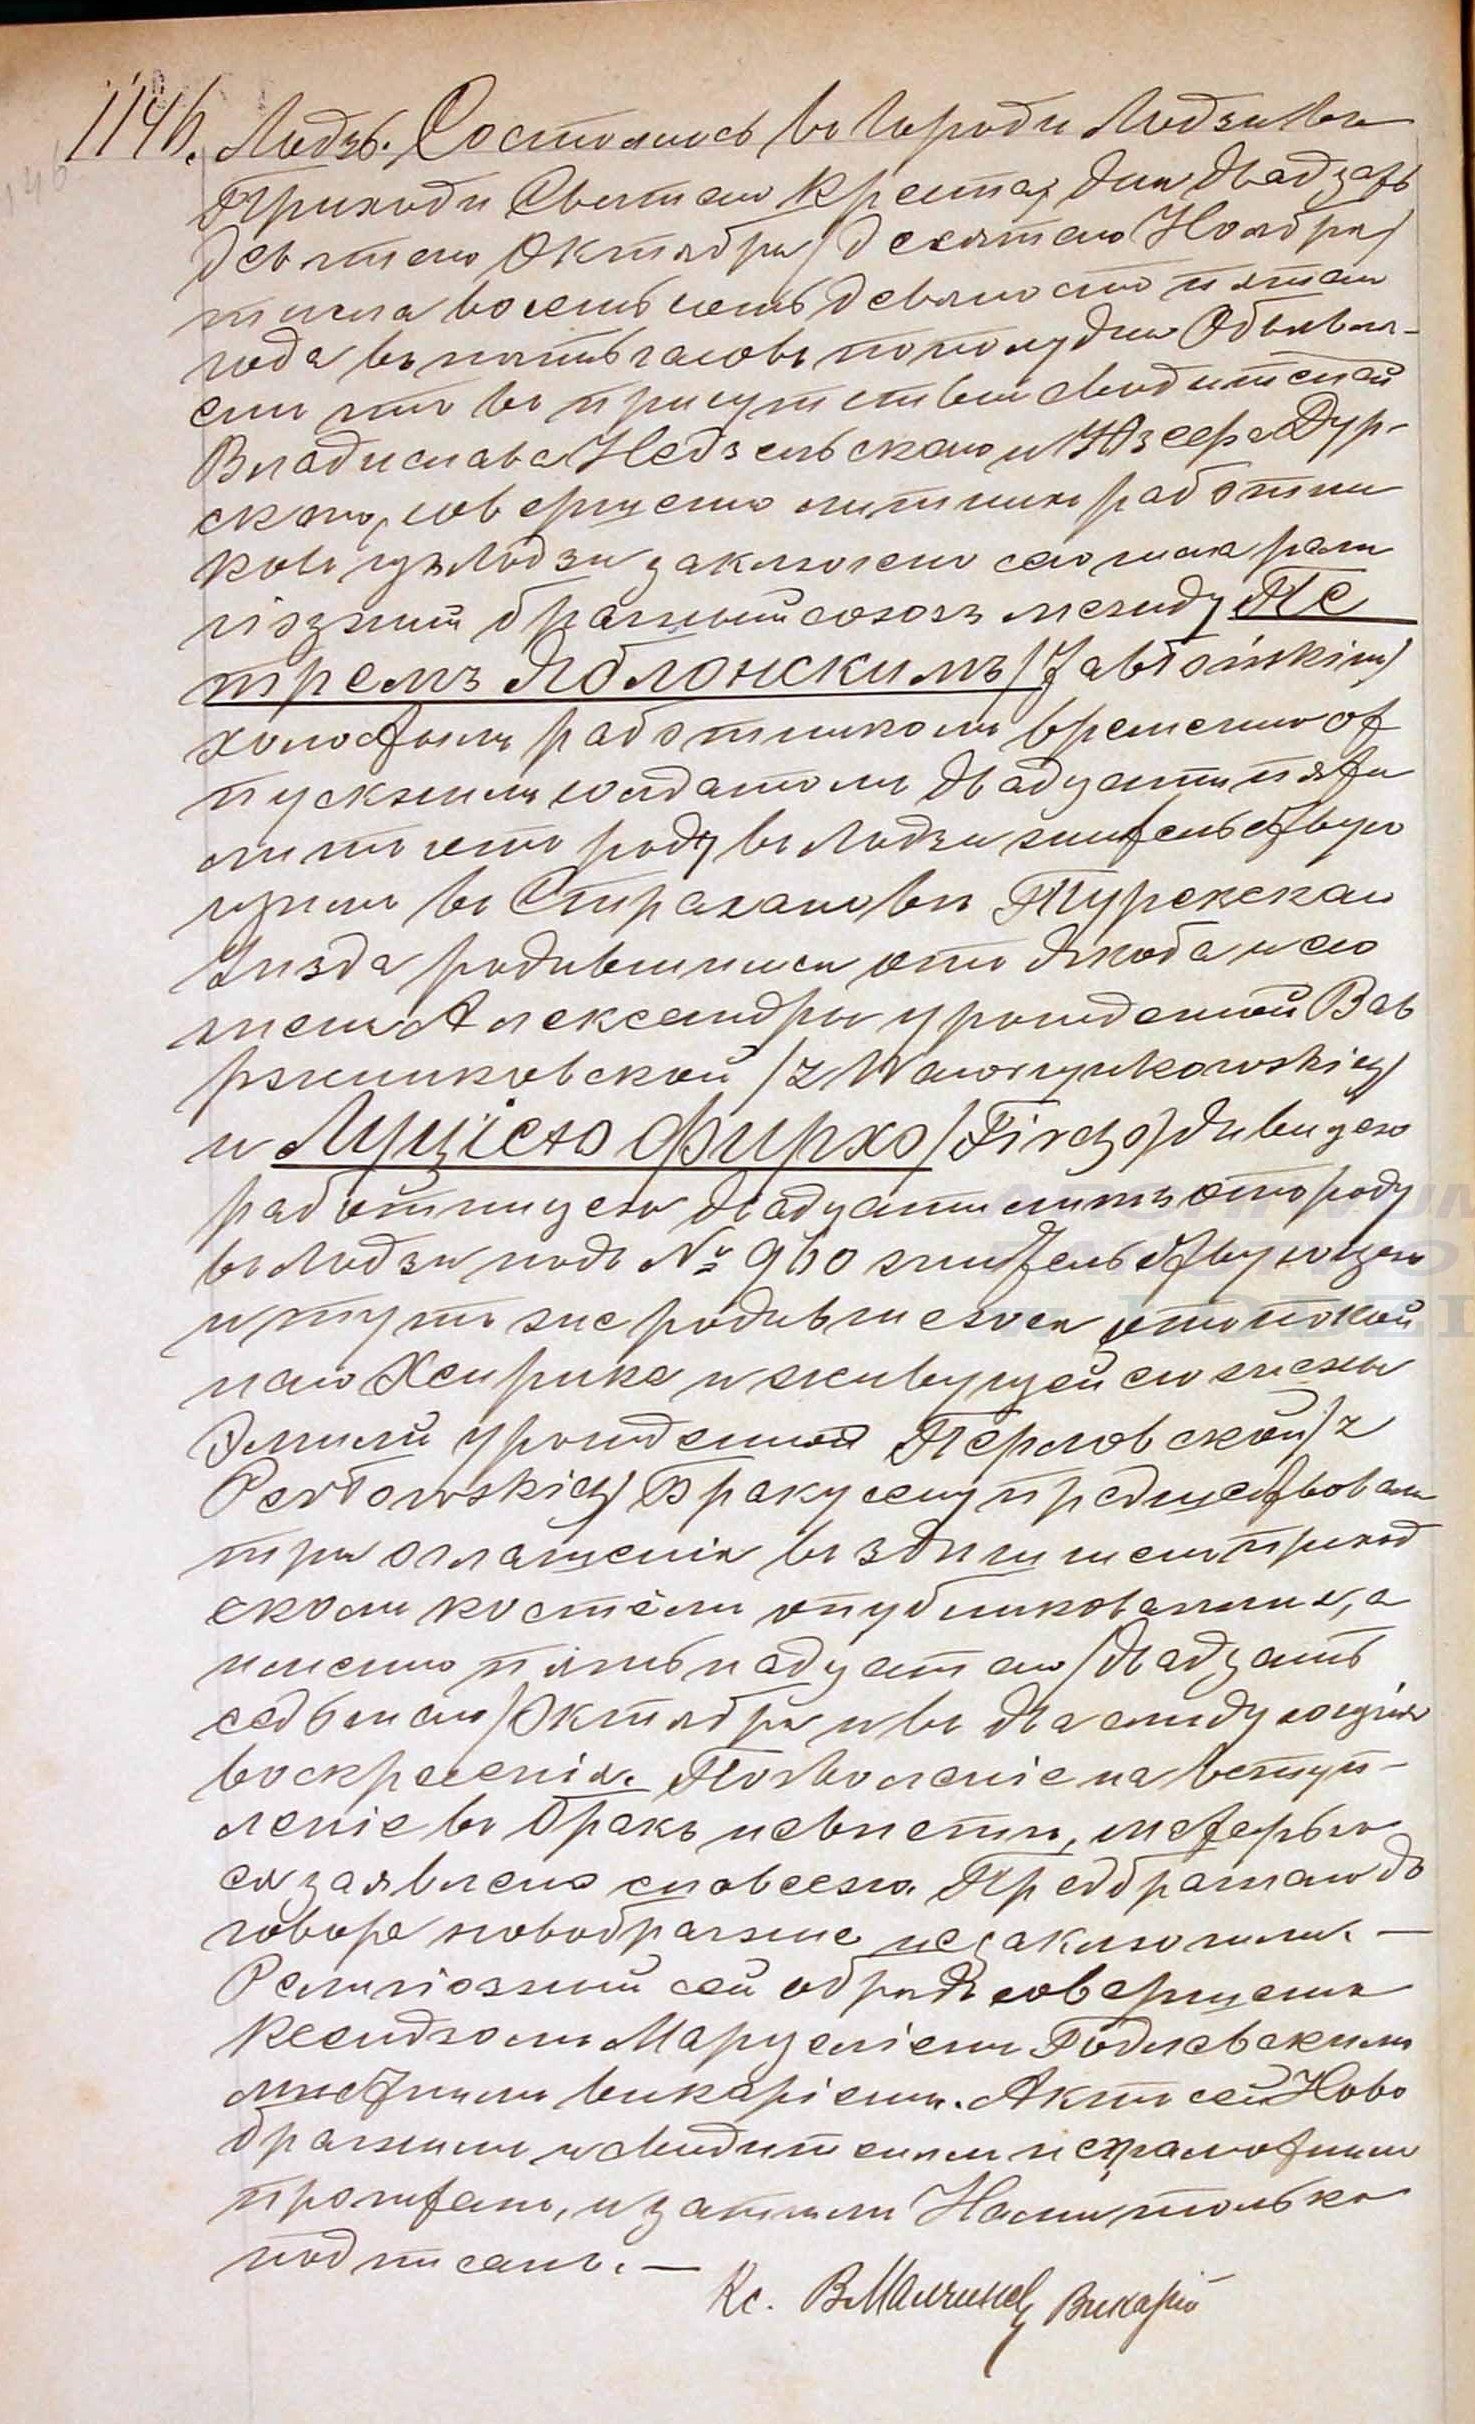 1146. Лодзь. Состоялось въ городѣ Лодзи въ
Приходѣ Святаго Креста, дня двадзать
девятаго Октября /десятаго Ноября/
тысяча восемьсотъ девяносто пятаго
года въ пять часовъ пополудни Объявля-
емъ что въ присутствіи свидѣтелей
Владислава Недзельскаго и Юзефа Дур-
скаго, совершенно лѣтнихъ работни
ковъ изъ Лодзи заключенъ сего числа рели
гіозный брачный союзъ между Пе
тремъ Яблонскимъ /Jabłońskim/
холостымъ работникомъ временно от
пускнымъ солдатомъ двадцати пяти
лѣтъ отъ роду въ Лодзи жительствую
щимъ въ Страхановѣ Турекскаго
Уѣзда родившимся отъ Якоба и его
жены Александры урожденной Вав
ржинковской /z Wawrzynkowskich/
и Луціею Фирхо /Fircho/ дѣвицею
работницею двадцати лѣтъ отъ роду
въ Лодзи подъ № 960 жительствующею
и тутъ же родившеюся отъ покой
наго Хенрика и живущей его жены
Эмиліи урожденной Перловской /z
Perłowskich/ Браку сему предшествовали
три оглашенія въ здѣшнемъ приход
скомъ костёлѣ опубликованныя, а
именно пятьнадцатаго /двадзать
седьмаго/ Октября и въ два слѣдующія
воскресенія. Позволеніе на вступ-
леніе въ бракъ невѣсты, матерью
ея заявлено словесно. Предбрачнаго до
говора новобрачные не заключили. —
Религіозный сей обрядъ совершенъ
Ксендзомъ Марцеліемъ Годлевскимъ
мѣстнымъ викаріемъ. Актъ сей Ново
брачнымъ и свидѣтелямъ неграмотнымъ
прочитанъ, и затѣмъ Нами только
подписанъ. —
Кс. В. Викарій